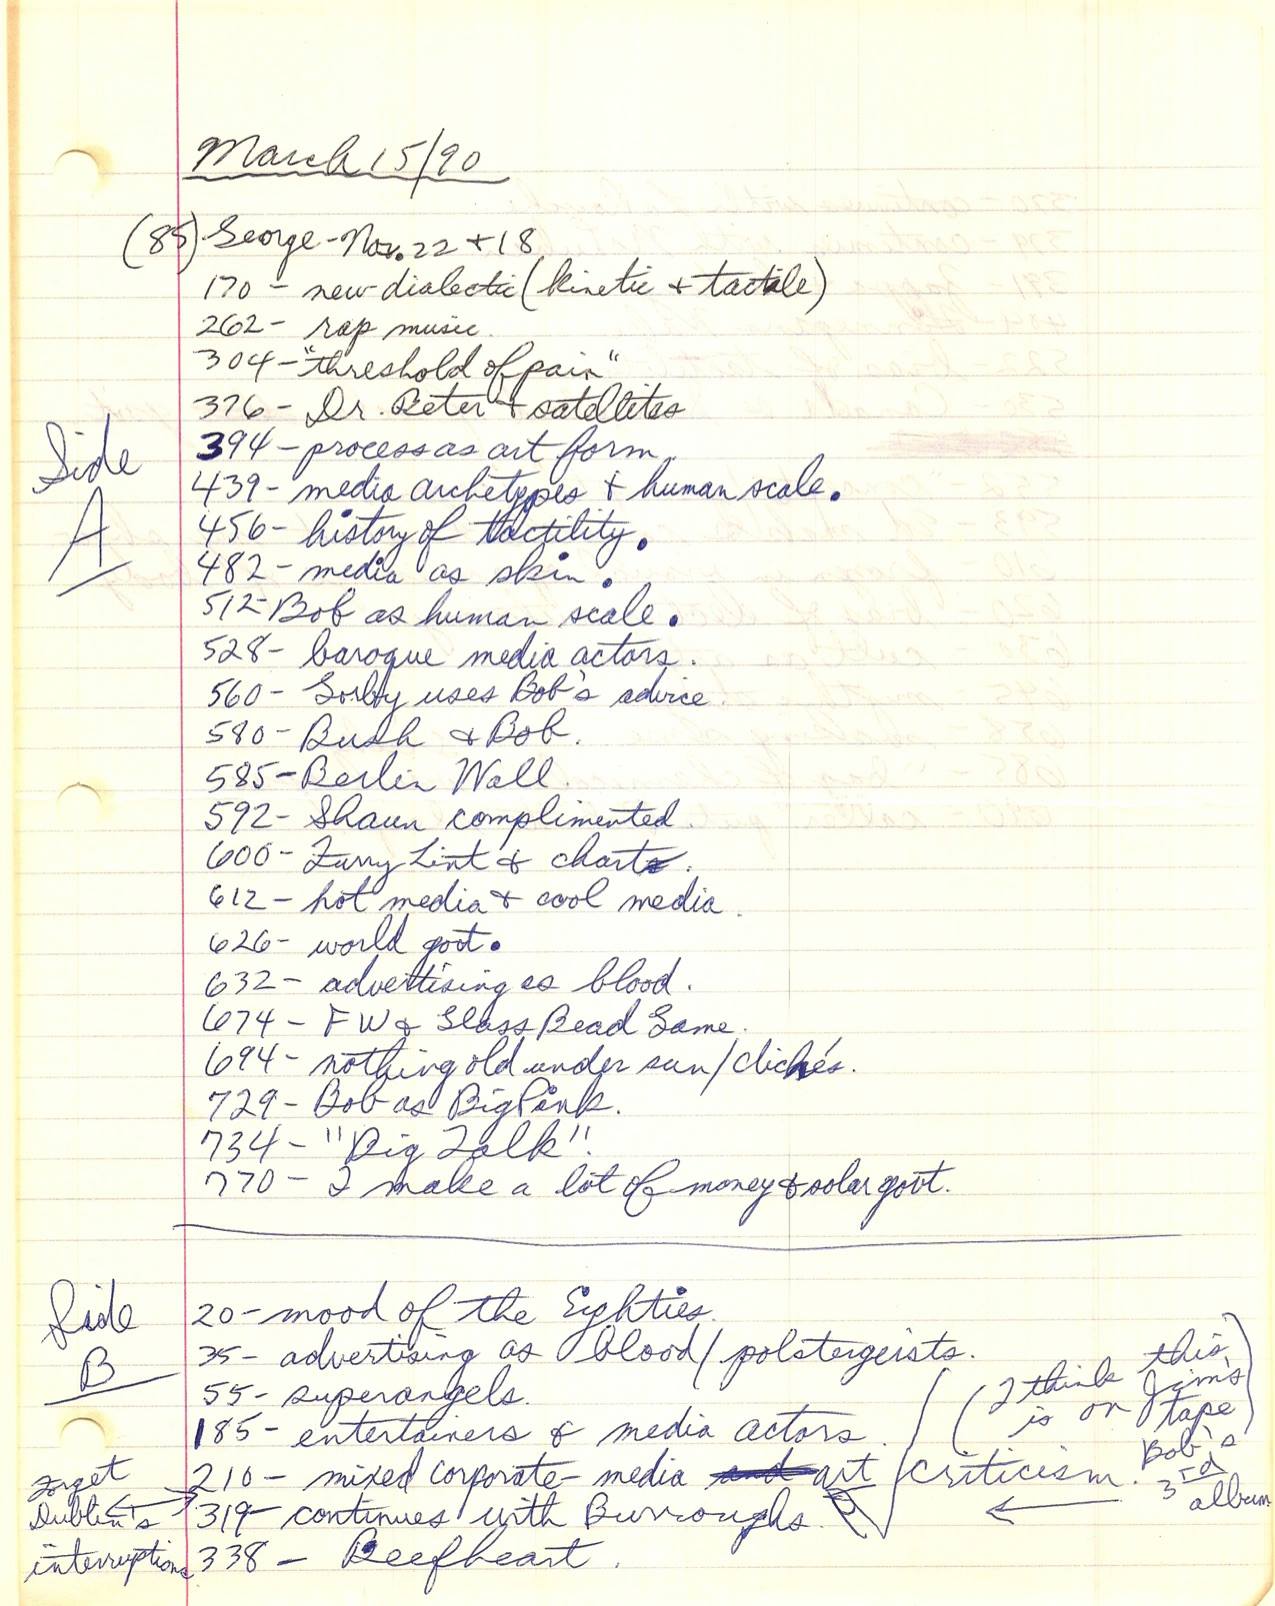 March 15/90
(85) George-Nov. 22 + 18
170 - new dialectic (kinetic + tactile)
262- rap music.
304-"threshold of pain"
376- Dr. Peter + satellites
Side A
394- process as art form.
439- media archetypes + human scale.
456- history of tactility.
482- media as skin.
512- Bob as human scale.
528- baroque media actors.
560- Sorby uses Bob's advice.
580- Bush & Bob.
585- Berlin Wall.
592- Shaun complimented.
600- Furry Lint & charts.
612- hot media + cool media.
626- world govt.
632- advertising as blood.
674- FW & Glass Bead Game.
694- nothing old under sun/clichés.
729- Bob as Big Pink.
734- "Big Talk".
770- I make a lot of money & solar govt.
Side B
20- mood of the Eighties.
35- advertising as blood/polstergeists.
55- superangels.
185- entertainers & media actors.
210- mixed corporate-media and art criticism.
319- continues with Burroughs.
338- Beefheart.
(I think this is on Jim's tape)
Bob's 3rd album
forget Dublin's interruptions